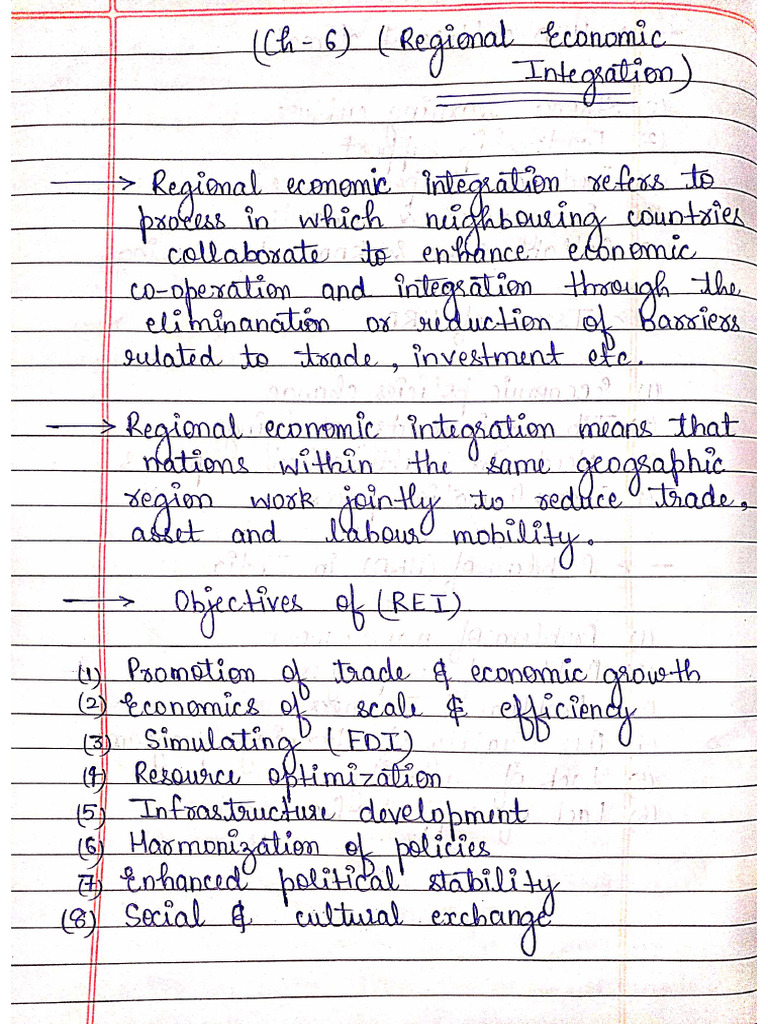 (Ch - 6) ( Regional Economic
Integration)
→ Regional economic integration refers to
process in which neighbouring countries
collaborate to enhance economic
co-operation and integration through the
eliminanation or reduction of Barriers
related to trade, investment etc.
→ Regional economic integration means that
nations within the same geographic
region work jointly to reduce trade,
asset and labour mobility.
→ Objectives of (REI)
(1) Promotion of trade & economic growth
(2) Economics of scale & efficiency
(3) Simulating (FDI)
(4) Resource optimization
(5) Infrastructure development
(6) Harmonization of policies
(7) Enhanced political stability
(8) Social & cultural exchange